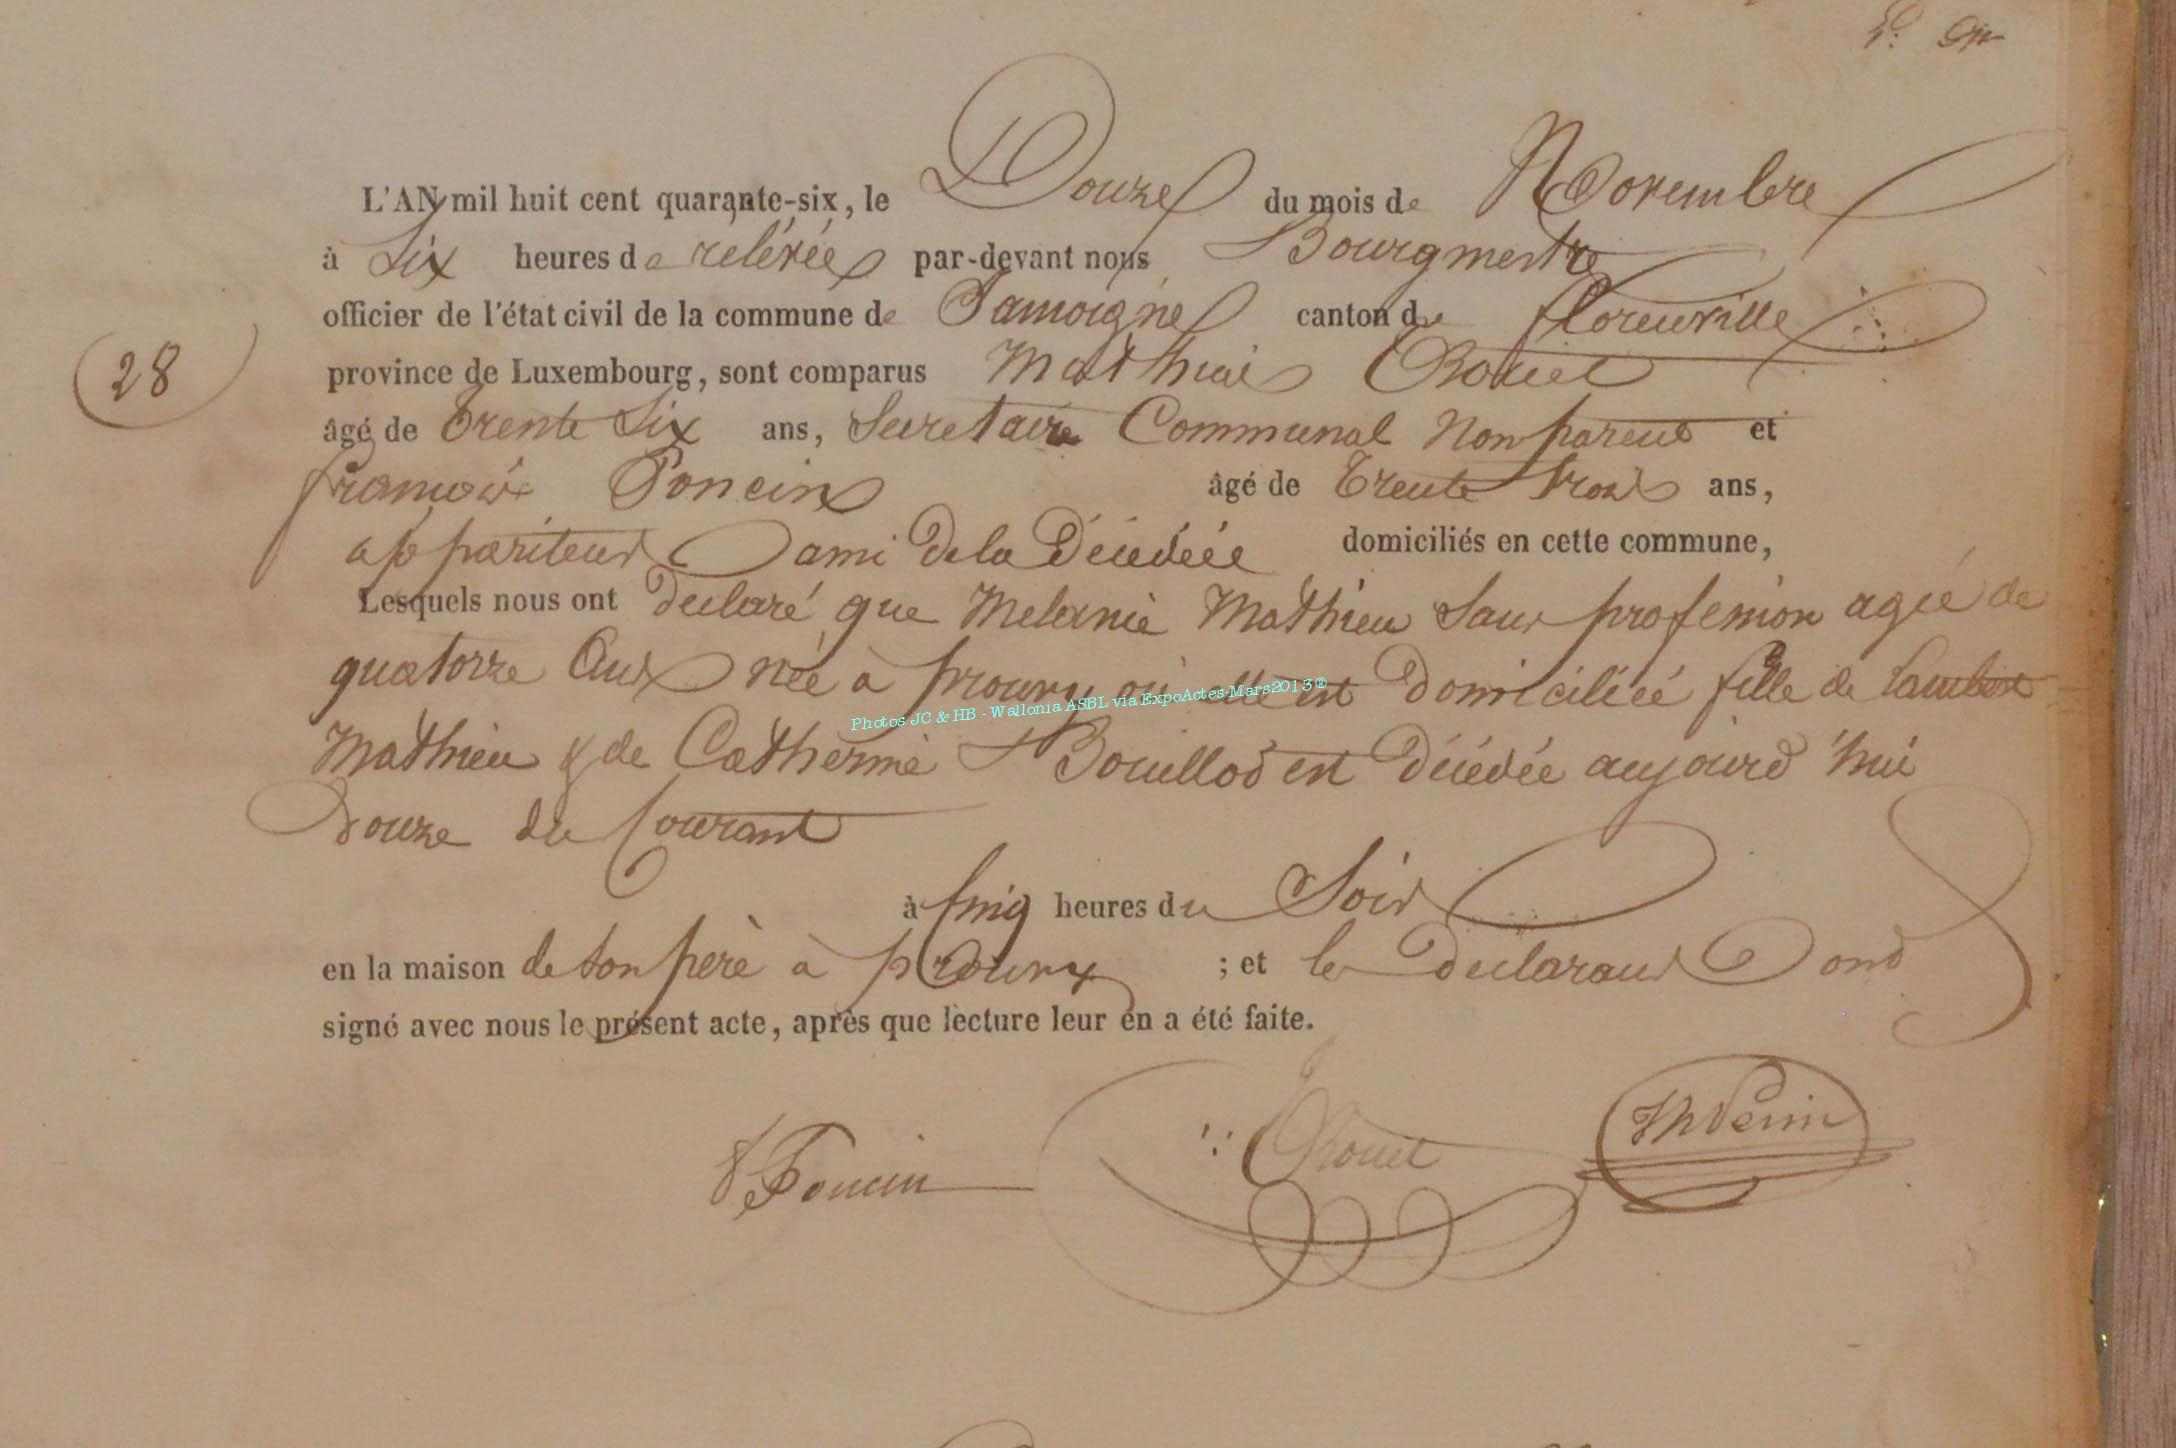 L'AN mil huit cent quarante-six, le Douze du mois de Novembre
à Six heures de rélévée par-devant nous Bourgmestre
officier de l'état civil de la commune de Jamoigne canton de florenville
28
province de Luxembourg, sont comparus Mathias Rouet
âgé de Trente Six ans, Secretaire Communal Non parent et
françois Poncin âgé de Trente trois ans,
appariteur ami de la Décédéé domiciliés en cette commune,
Lesquels nous ont declaré que Melanie Mathieu Sans profession agée de
quatorze Ans née à prouvy où elle est Domiciliée fille de Lambert
Mathieu & de Catherine Bouillod est Décédée aujourd'hui
Douze du Courant
à Cinq heures du Soir
en la maison de son père à prouvy ; et les declarans ond
signé avec nous le présent acte, après que lecture leur en a été faite.
Poncin Rouet
Photos JC & HB - Wallonia ASBL via ExpoActes-Mars2013©